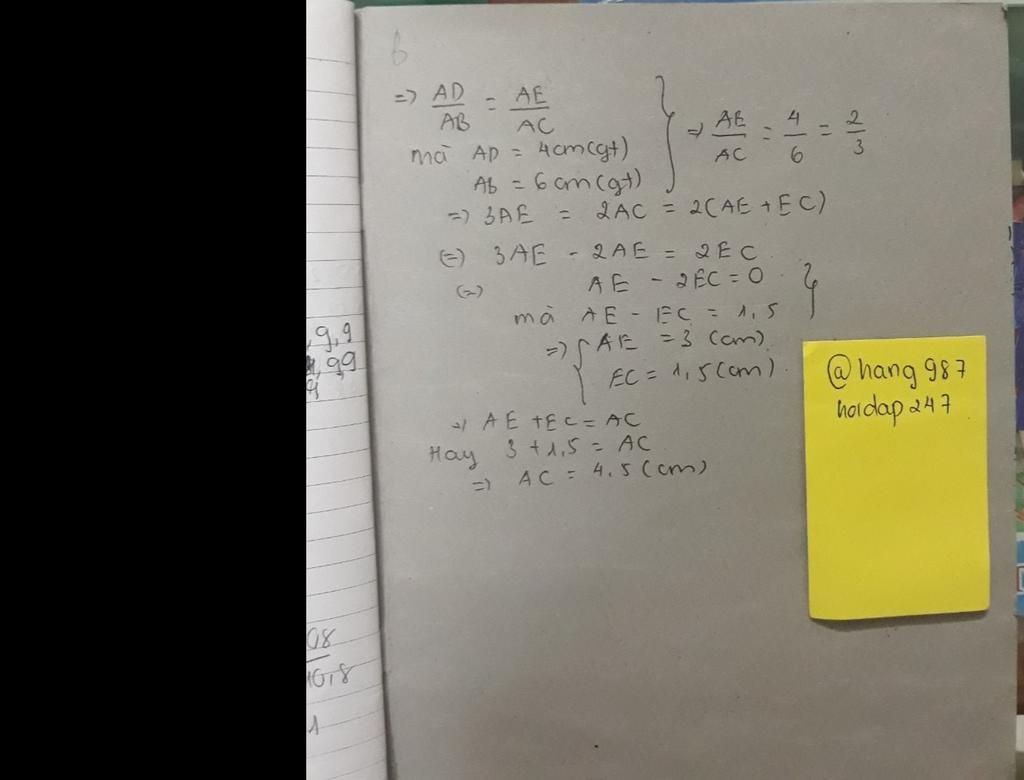 6
=> AD/AB = AE/AC
mà AD = 4cm(gt)
Ab = 6cm(gt)
=> AE/AC = 4/6 = 2/3
=> 3AE = 2AC = 2(AE + EC)
(=) 3AE - 2AE = 2EC
(=) AE - 2EC = 0
mà AE - EC = 1,5
=> AE = 3 (cm)
EC = 1,5(cm)
=> AE + EC = AC
Hay 3 + 1,5 = AC
=> AC = 4.5 (cm)
@hang987
hoidap247
,9,9
,99
08
10,8
1